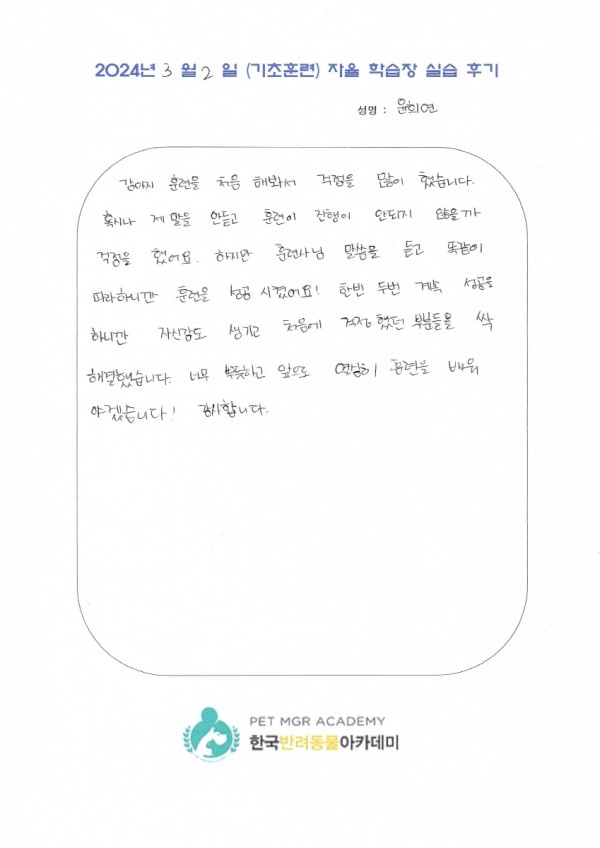 2024년 3 월 2 일 (기초훈련) 자율 학습장 실습 후기
성명 : 윤희연
강아지 훈련을 처음 해봐서 걱정을 많이 했습니다.
혹시나 제 말을 안듣고 훈련이 진행이 안되지 않을까
걱정을 했어요. 하지만 훈련사님 말씀을 듣고 똑같이
따라하니깐 훈련을 성공 시켰어요! 한번 두번 계속 성공을
하니깐 자신감도 생기고 처음에 걱정했던 부분들을 싹
해결했습니다. 너무 뿌듯하고 앞으로 열심히 훈련을 배워
야겠습니다! 감사합니다.
PET MGR ACADEMY
한국반려동물아카데미